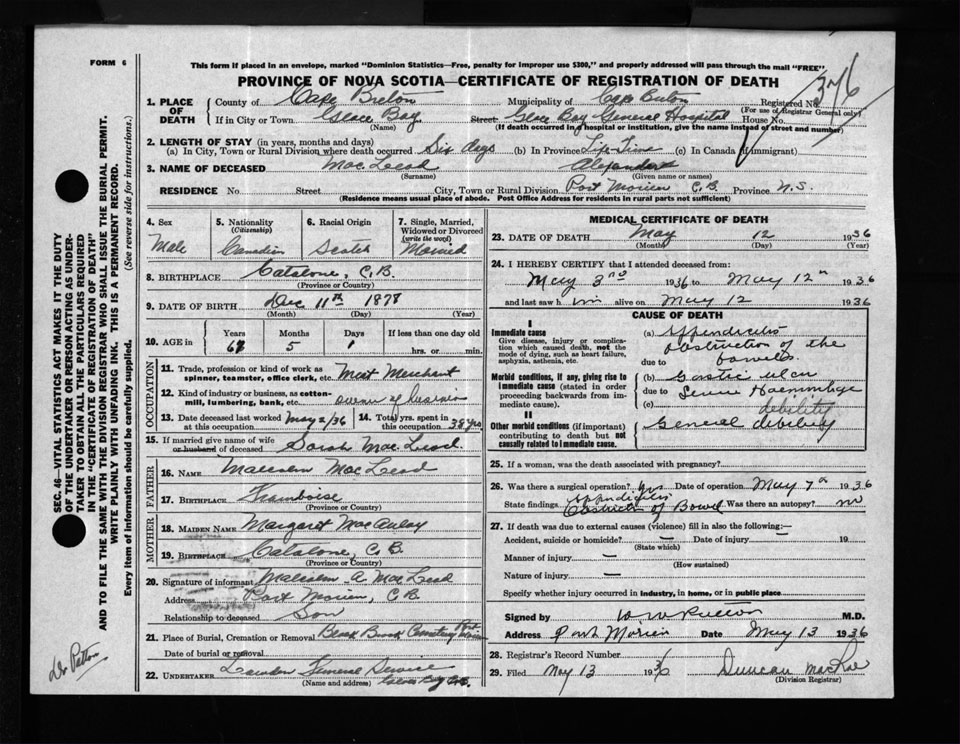 FORM 6
This form if placed in an envelope, marked "Dominion Statistics—Free, penalty for improper use $300," and properly addressed will pass through the mail "FREE"
PROVINCE OF NOVA SCOTIA—CERTIFICATE OF REGISTRATION OF DEATH
376
1. PLACE OF DEATH { County of Cape Breton Municipality of Cape Breton Registered No.
(For use of Registrar General only)
If in City or Town Glace Bay (Name) Street Glace Bay General Hospital House No.
(If death occurred in hospital or institution, give the name instead of street and number)
2. LENGTH OF STAY (in years, months and days)
(a) In City, Town or Rural Division where death occurred Six days (b) In Province Life-Time (c) In Canada (if immigrant)
3. NAME OF DECEASED MacLeod (Surname) Alexander (Given name or names)
RESIDENCE No. Street City, Town or Rural Division Port Morien C.B. Province N.S.
(Residence means usual place of abode. Post Office Address for residents in rural parts not sufficient)
4. Sex Male
5. Nationality (Citizenship) Canadian
6. Racial Origin Scotch
7. Single, Married, Widowed or Divorced (write the word) Married
8. BIRTHPLACE Catalone, C.B.
(Province or County)
9. DATE OF BIRTH Dec 11th 1878
(Month) (Day) (Year)
10. AGE in { Years Months 5 Days 1 If less than one day old hrs. or min.
OCCUPATION
11. Trade, profession or kind of work as spinner, teamster, office clerk, etc. Meat Merchant
12. Kind of industry or business, as cotton-mill, lumbering, bank, etc. owner of business
13. Date deceased last worked at this occupation May 2/36
14. Total yrs. spent in this occupation 38 yrs
15. If married give name of wife or husband of deceased Sarah MacLeod
FATHER
16. NAME Malcolm MacLeod
17. BIRTHPLACE Framboise
(Province or Country)
MOTHER
18. MAIDEN NAME Margaret MacAulay
19. BIRTHPLACE Catalone, C.B.
(Province or Country)
20. Signature of informant Malcolm A MacLeod
Address Port Morien, C.B
Relationship to deceased Son
21. Place of Burial, Cremation or Removal Black Brook Cemetery Port Morien
Date of burial or removal
22. UNDERTAKER Funeral Service
(Name and address) Glace Bay C.B.
MEDICAL CERTIFICATE OF DEATH
23. DATE OF DEATH May 12 1936
(Month) (Day) (Year)
24. I HEREBY CERTIFY that I attended deceased from:
May 3rd 1936 to May 12th 1936
and last saw him alive on May 12 1936
CAUSE OF DEATH
I
Immediate cause
Give disease, injury or complication which caused death, not the mode of dying, such as heart failure, asphyxia, asthenia, etc.
(a) Appendicitis
obstruction of the
due to bowels.
Morbid conditions, if any, giving rise to immediate cause (stated in order proceeding backwards from immediate cause).
(b) Gastric ulcer
due to Severe Haemorrhage
(c) debility
II
Other morbid conditions (if important) contributing to death but not causally related to immediate cause.
General debility
25. If a woman, was the death associated with pregnancy?
26. Was there a surgical operation? yes Date of operation May 7th 1936
State findings Appendicitis of Bowel Was there an autopsy? no
27. If death was due to external causes (violence) fill in also the following:—
Accident, suicide or homicide? — Date of injury — 19
(State which)
Manner of injury —
(How sustained)
Nature of injury —
Specify whether injury occurred in industry, in home, or in public place
Signed by M.D.
Address Port Morien Date May 13 1936
28. Registrar's Record Number
29. Filed May 13 1936 Duncan MacRae
(Division Registrar)
SEC. 46—VITAL STATISTICS ACT MAKES IT THE DUTY
OF THE UNDERTAKER OR PERSON ACTING AS UNDER-
TAKER TO OBTAIN ALL THE PARTICULARS REQUIRED
IN THE "CERTIFICATE OF REGISTRATION OF DEATH"
AND TO FILE THE SAME WITH THE DIVISION REGISTRAR WHO SHALL ISSUE THE BURIAL PERMIT.
WRITE PLAINLY WITH UNFADING INK. THIS IS A PERMANENT RECORD.
Every item of information should be carefully supplied. (See reverse side for instructions.)
Dr Patton